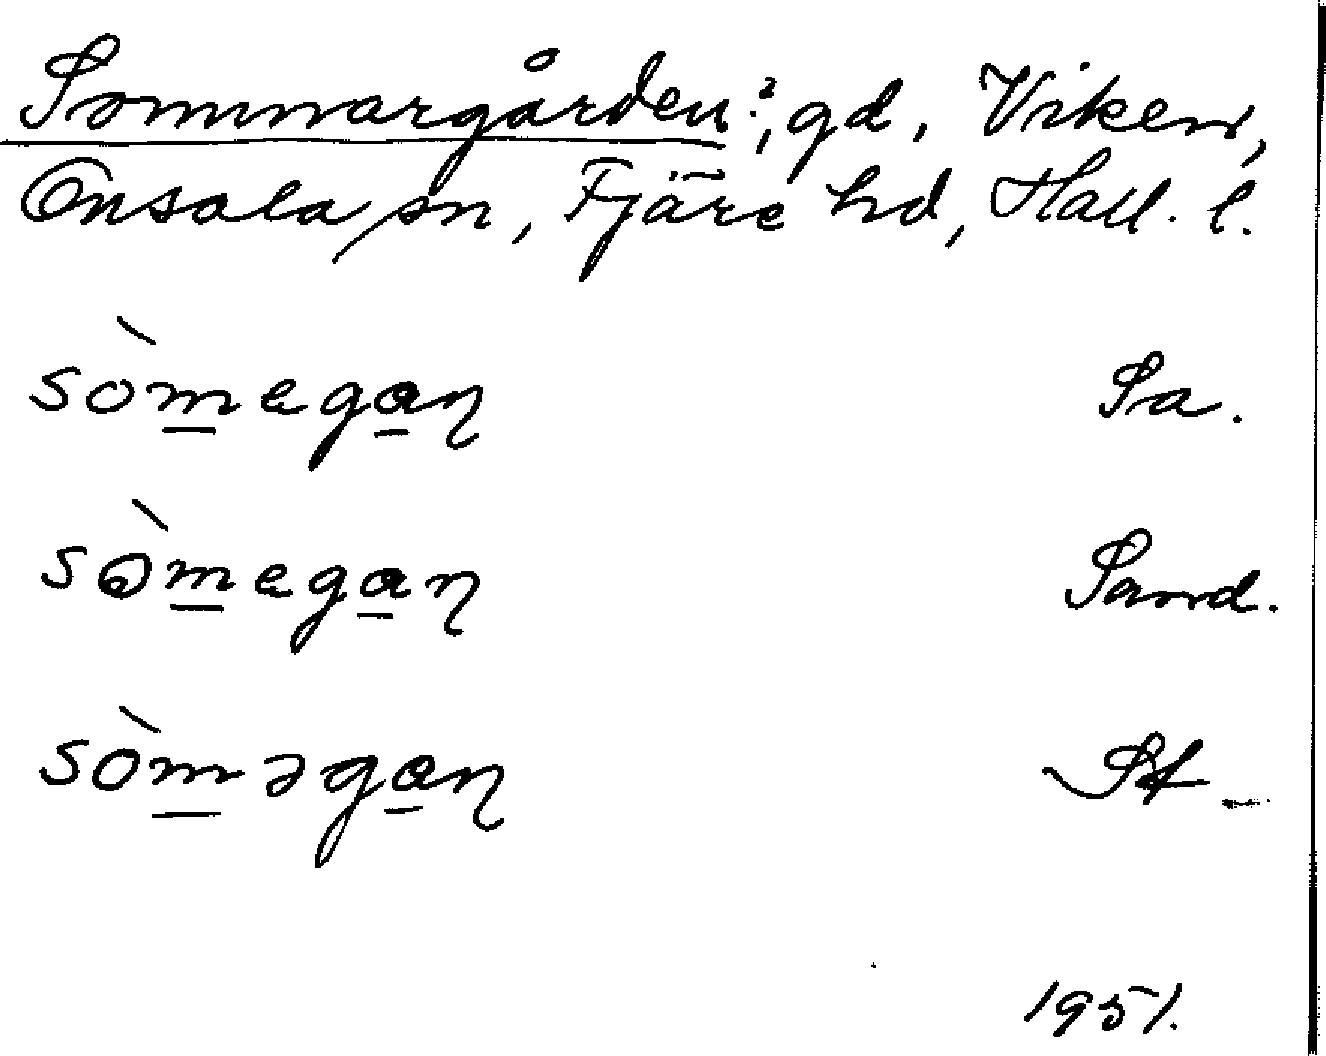 Sommargården:², gd, Viken,
Onsala sn, Fjäre hd, Hall. l.
sòm̲ega̲ɳ Sa.
sòm̲ega̲ɳ Sand.
sòm̲əga̲ɳ St.
1951.